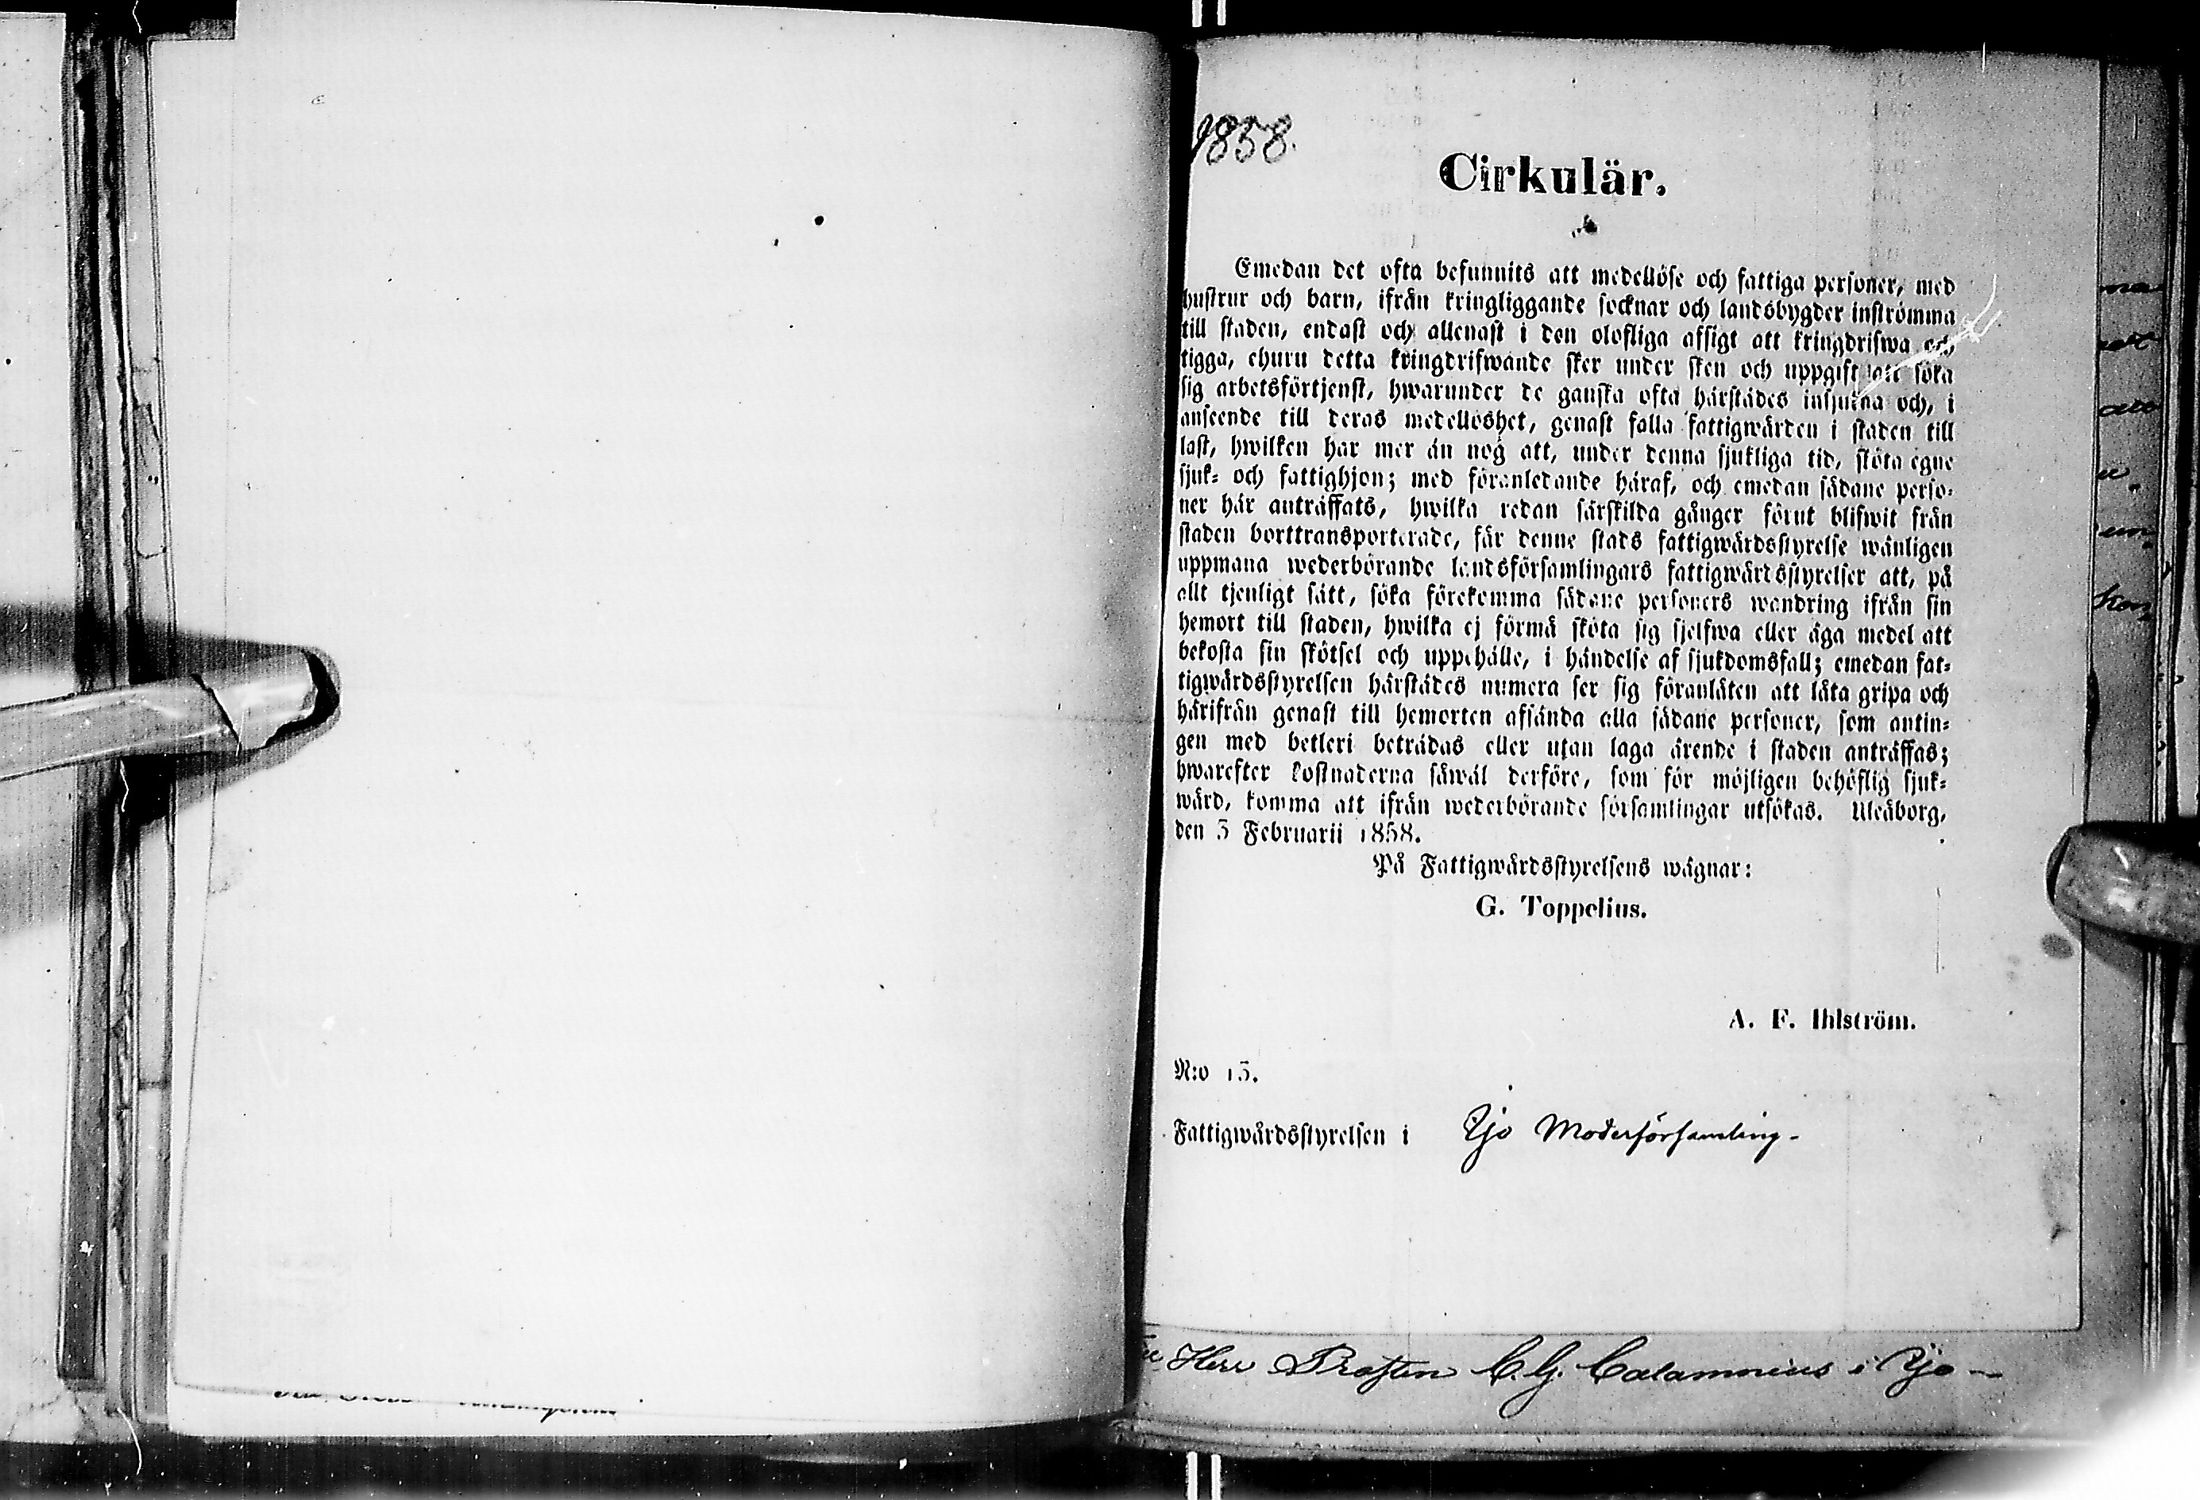 1858.
Cirkulär.
Emedan det ofta befunnits att medellöse och fattiga personer, med
hustrur och barn, ifrån kringliggande socknar och landsbygder inströmma
till staden, endast och allenast i den olofliga afsigt att kringdrifwa och
tigga, ehuru detta kringdrifwande sker under sken och uppgift att söka
sig arbetsförtjenst, hwarunder de ganska ofta härstädes insjukna och, i
anseende till deras medellöshet, genast falla fattigwården i staden till
last, hwilken har mer än nog att, under denna sjukliga tid, sköta egne
sjuk- och fattighjon; med föranledande häraf, och emedan sådane perso-
ner här anträffats, hwilka redan särskilda gånger förut blifwit från
staden borttransporterade, får denne stads fattigwårdsstyrelse wänligen
uppmana wederbörande landsförsamlingars fattigwårdsstyrelser att, på
allt tjenligt sätt, söka förekomma sådane personers wandring ifrån sin
hemort till staden, hwilka ej förmå sköta sig sjelfwa eller äga medel att
bekosta sin skötsel och uppehälle, i händelse af sjukdomsfall; emedan fat-
tigwårdsstyrelsen härstädes numera ser sig föranlåten att låta gripa och
härifrån genast till hemorten afsända alla sådane personer, som antin-
gen med betleri beträdas eller utan laga ärende i staden anträffas;
hwarefter kostnaderna såwäl derföre, som för möjligen behöflig sjuk-
wård, komma att ifrån wederbörande församlingar utsökas. Uleåborg,
den 3 Februarii 1858.
På Fattigwårdsstyrelsens wägnar:
G. Toppelius.
A. F. Ihlström.
N:o 15.
Fattigwårdsstyrelsen i Ijo Moderförsamling.
Herr Prosten C. G. Calamnius i Ijo